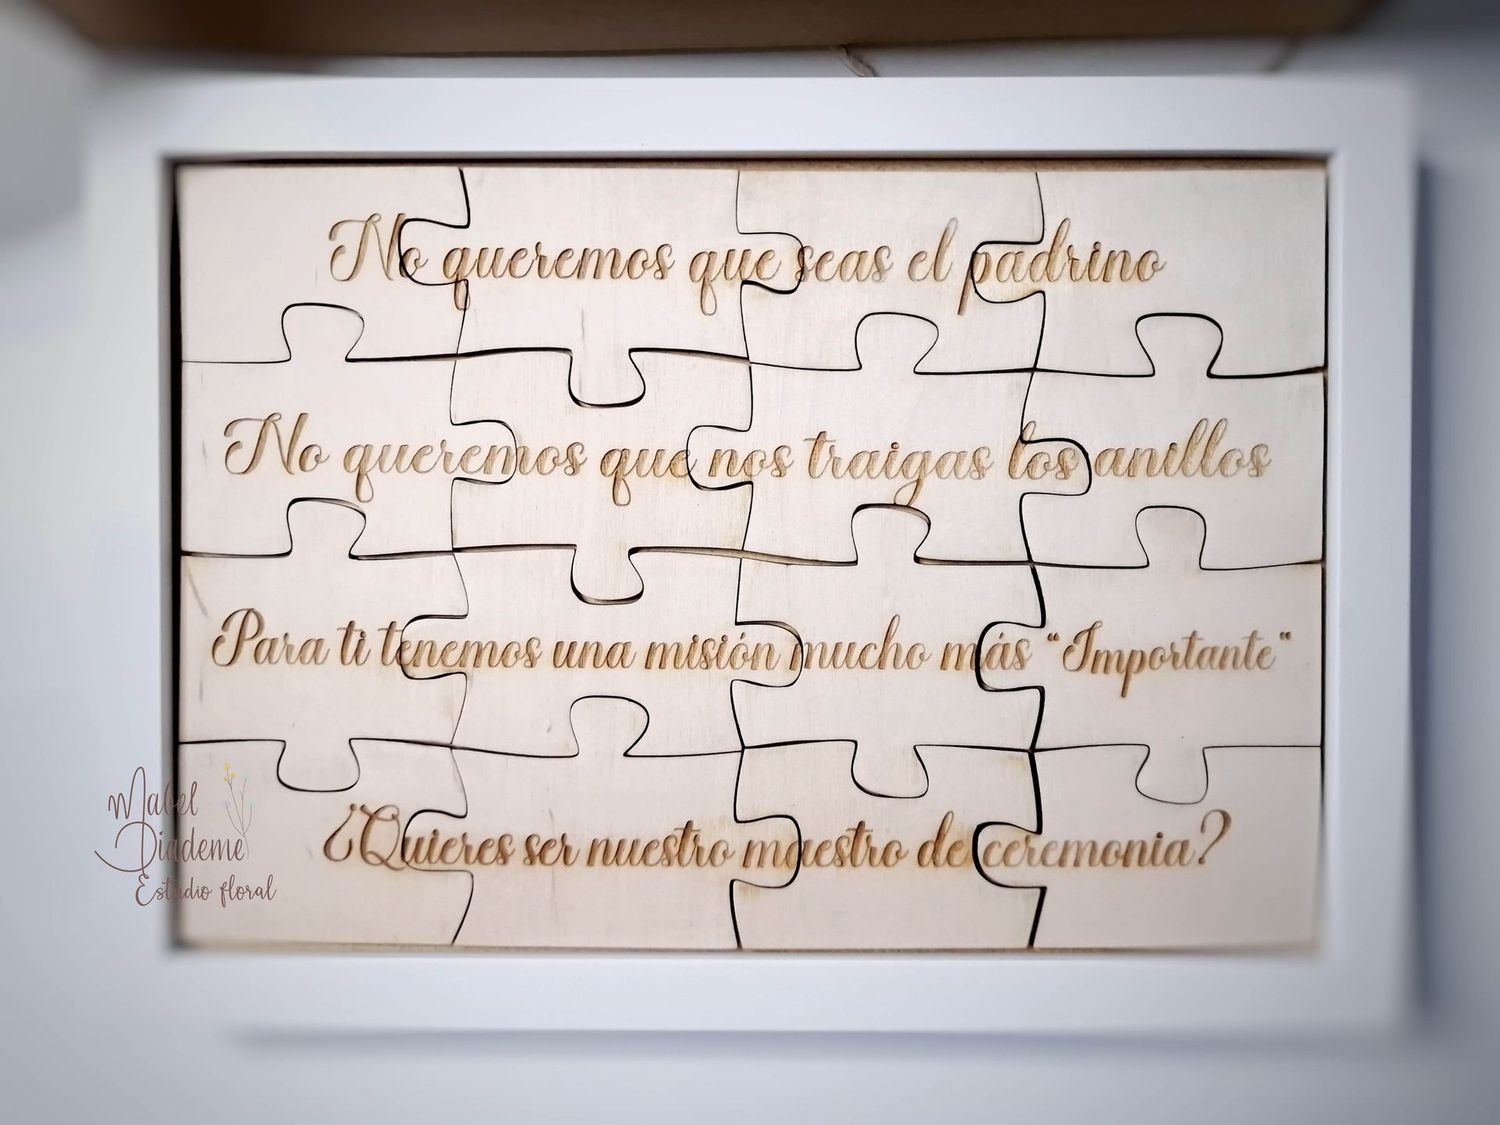 No queremos que seas el padrino
No queremos que nos traigas los anillos
Para ti tenemos una misión mucho más “Importante“
¿Quieres ser nuestro maestro de ceremonia?
Mabel
Diademe
Estudio floral